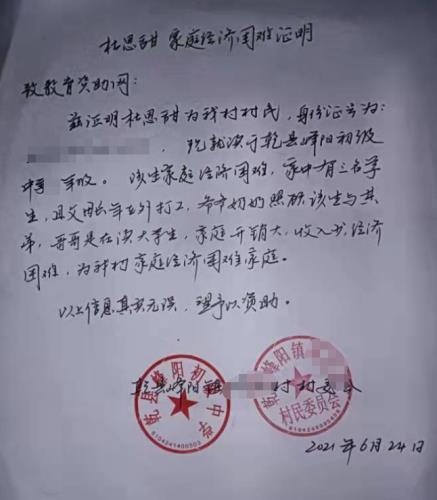 杜思甜 家庭经济困难证明
致教育资助网：
兹证明杜思甜为我村村民，身份证号为：
，现就读于乾县峰阳初级
中学 年级。该生家庭经济困难，家中有三名学
生，且父母长年在外打工，爷爷奶奶照顾该生与其
弟，哥哥是在读大学生，家庭开销大，收入少，经济
困难，为我村家庭经济困难家庭。
以上信息真实无误，望予以资助。
乾县峰阳镇 村村委会
乾县峰阳初级中学
6104241400503
乾县峰阳镇
村民委员会
2021年6月24日